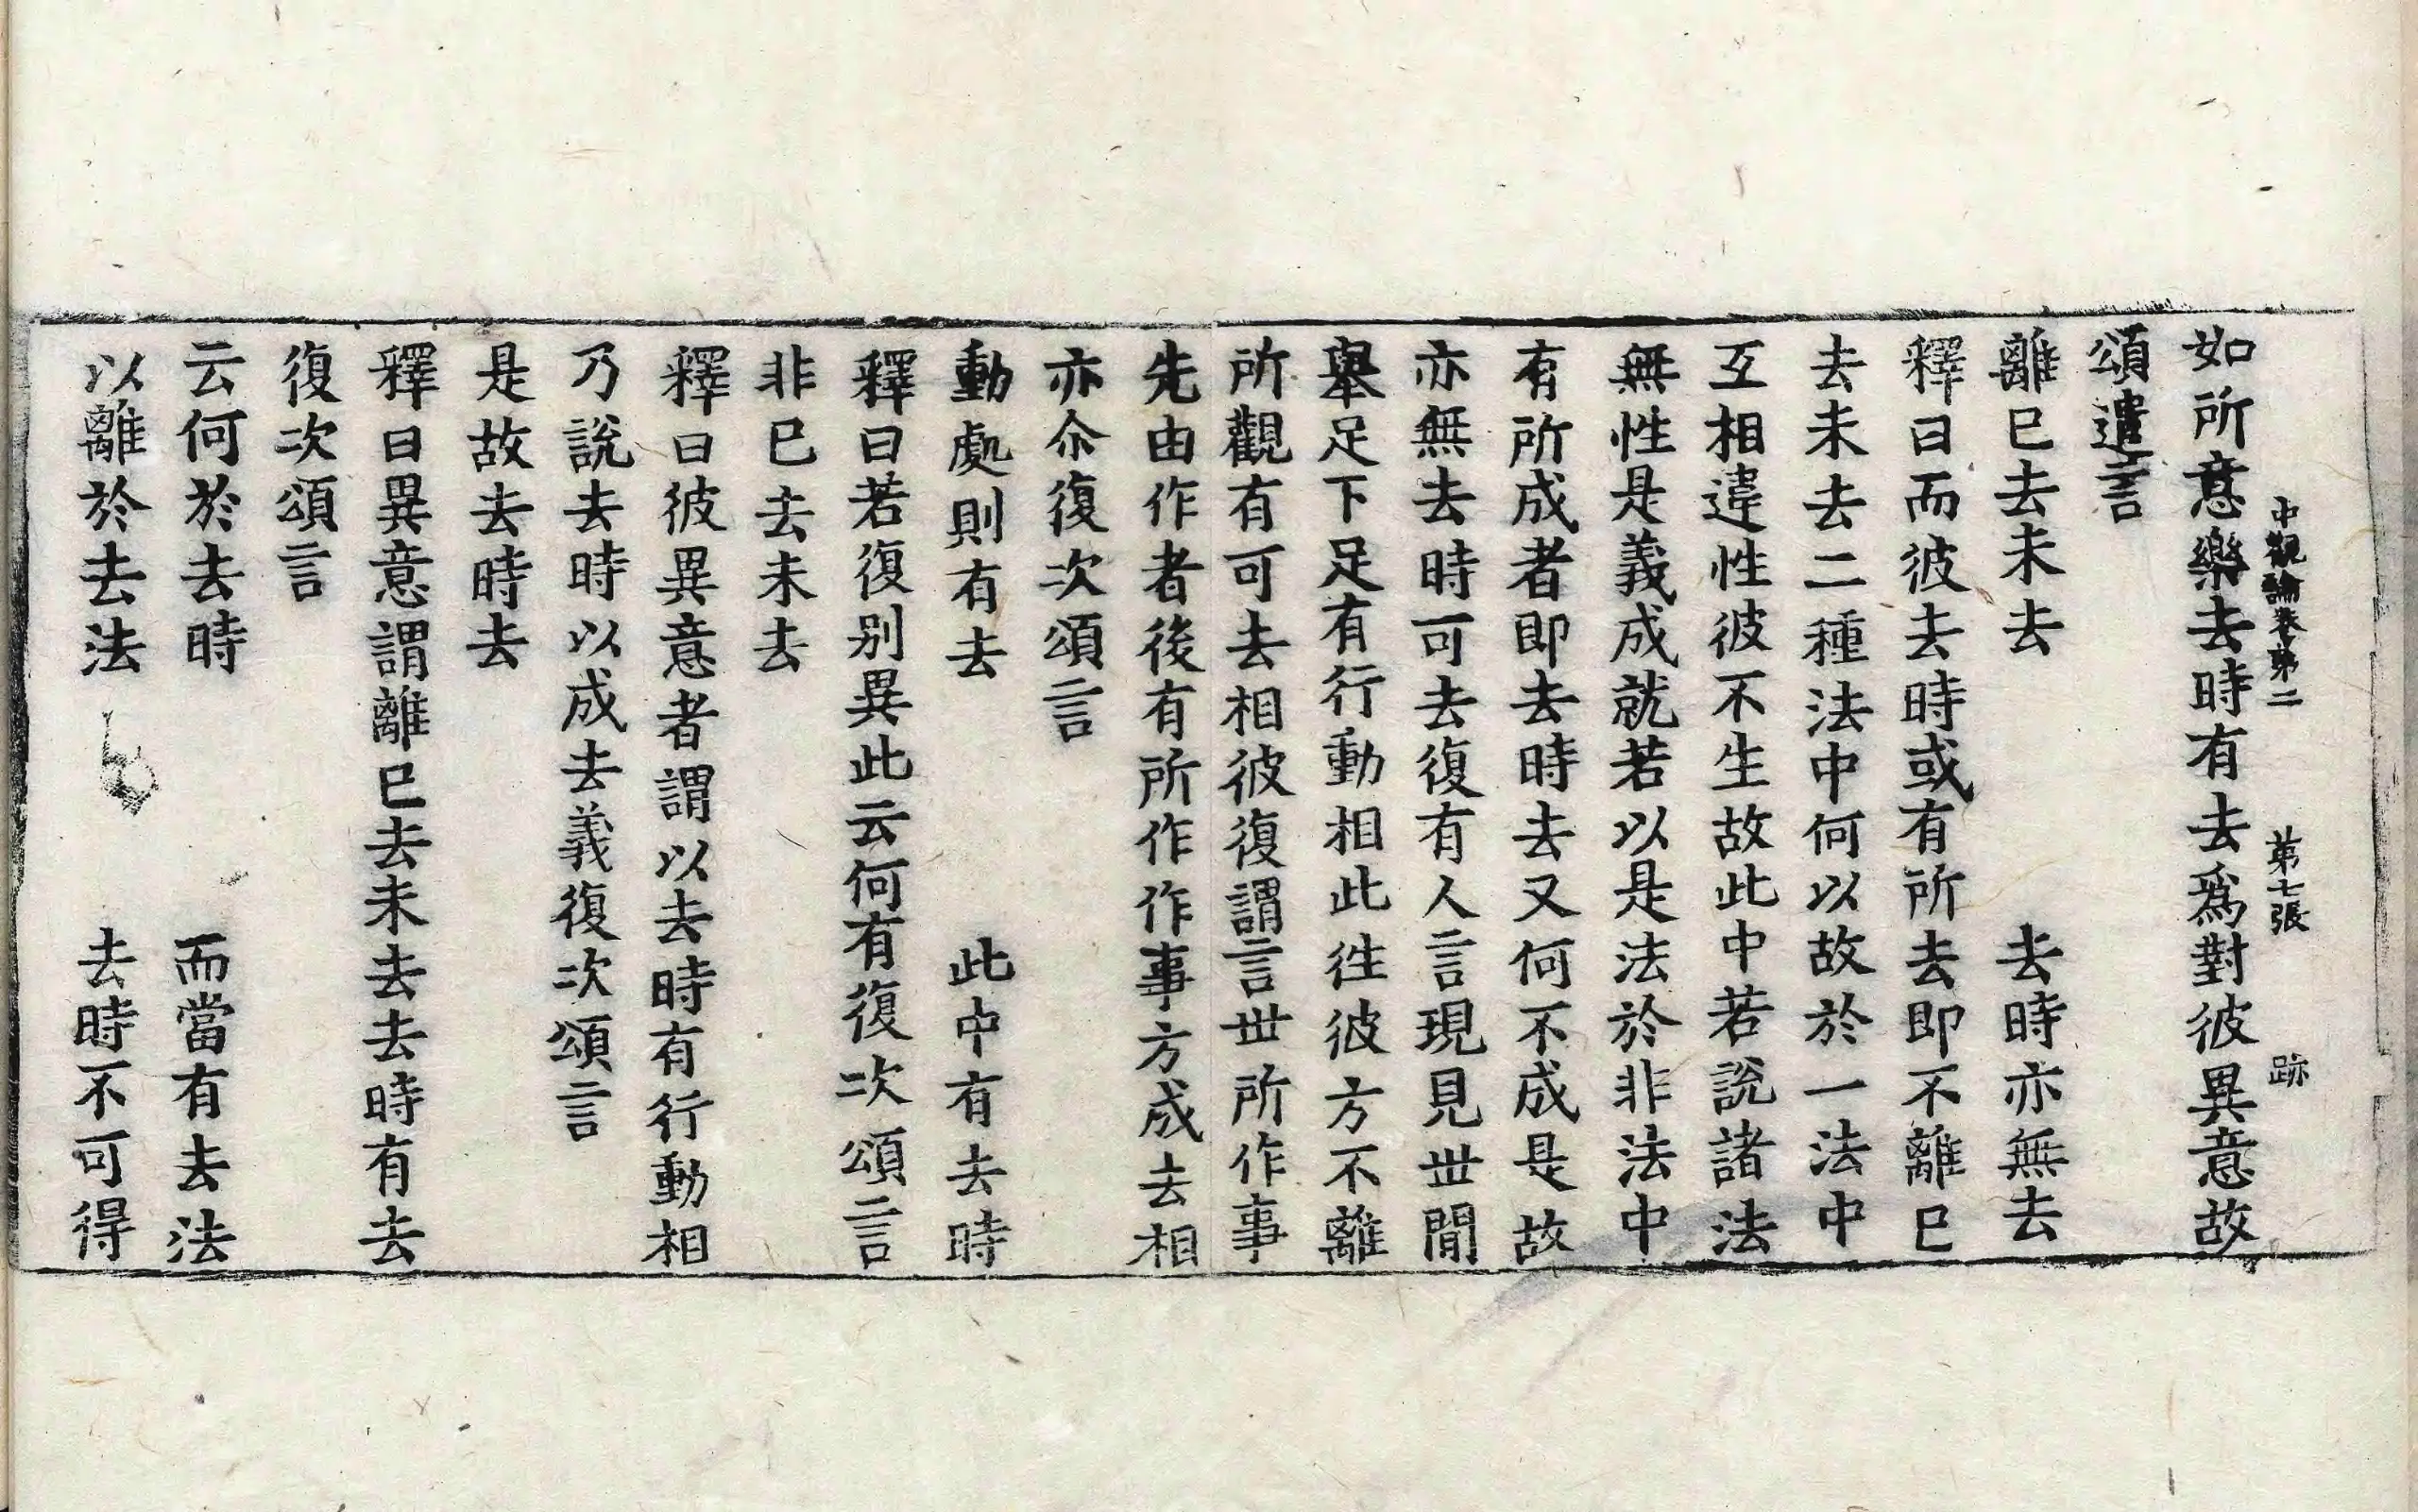 中觀論卷第二 第七張 跡
如所意樂去時有去爲對彼異意故
頌遣言
離已去未去 去時亦無去
釋曰而彼去時或有所去即不離已
去未去二種法中何以故於一法中
互相違性彼不生故此中若說諸法
無性是義成就若以是法於非法中
有所成者即去時去又何不成是故
亦無去時可去復有人言現見世間
舉足下足有行動相此徃彼方不離
所觀有可去相彼復謂言世所作事
先由作者後有所作作事方成去相
亦尒復次頌言
動處則有去 此中有去時
釋曰若復別異此云何有復次頌言
非已去未去
釋曰彼異意者謂以去時有行動相
乃說去時以成去義復次頌言
是故去時去
釋曰異意謂離已去未去去時有去
復次頌言
云何於去時 而當有去法
以離於去法 去時不可得